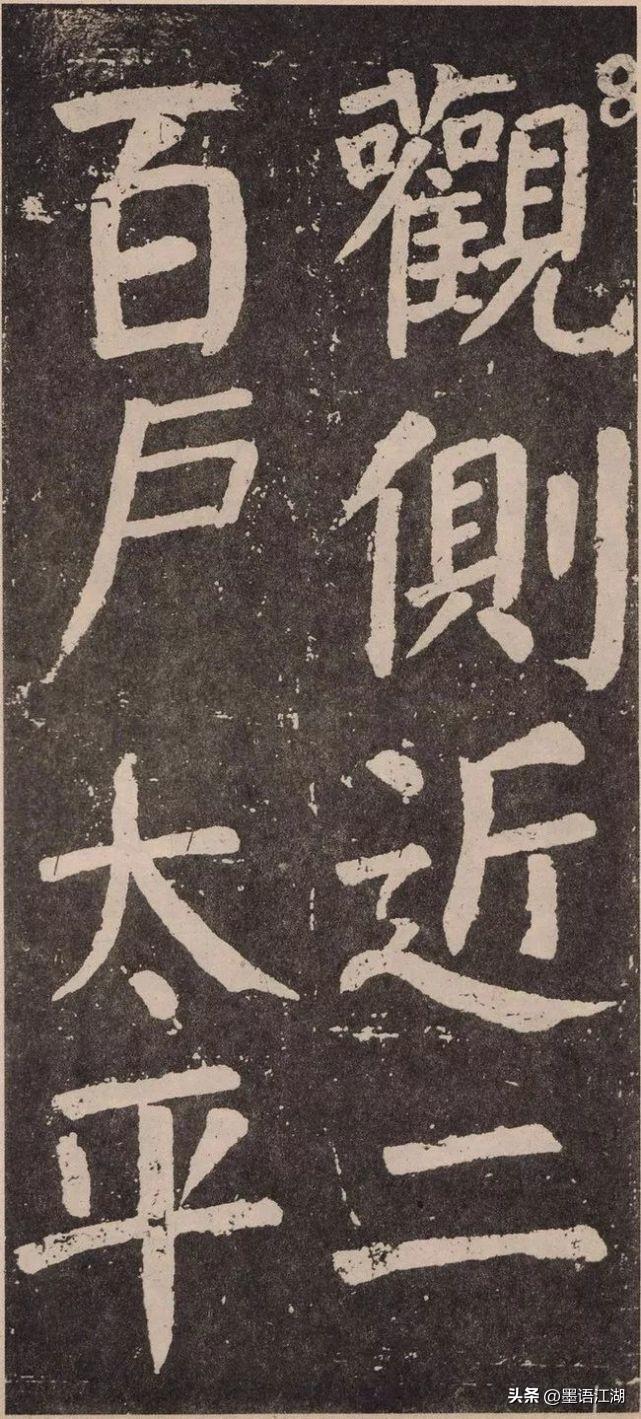 觀側近二
百戶太平
头条 @墨语江湖